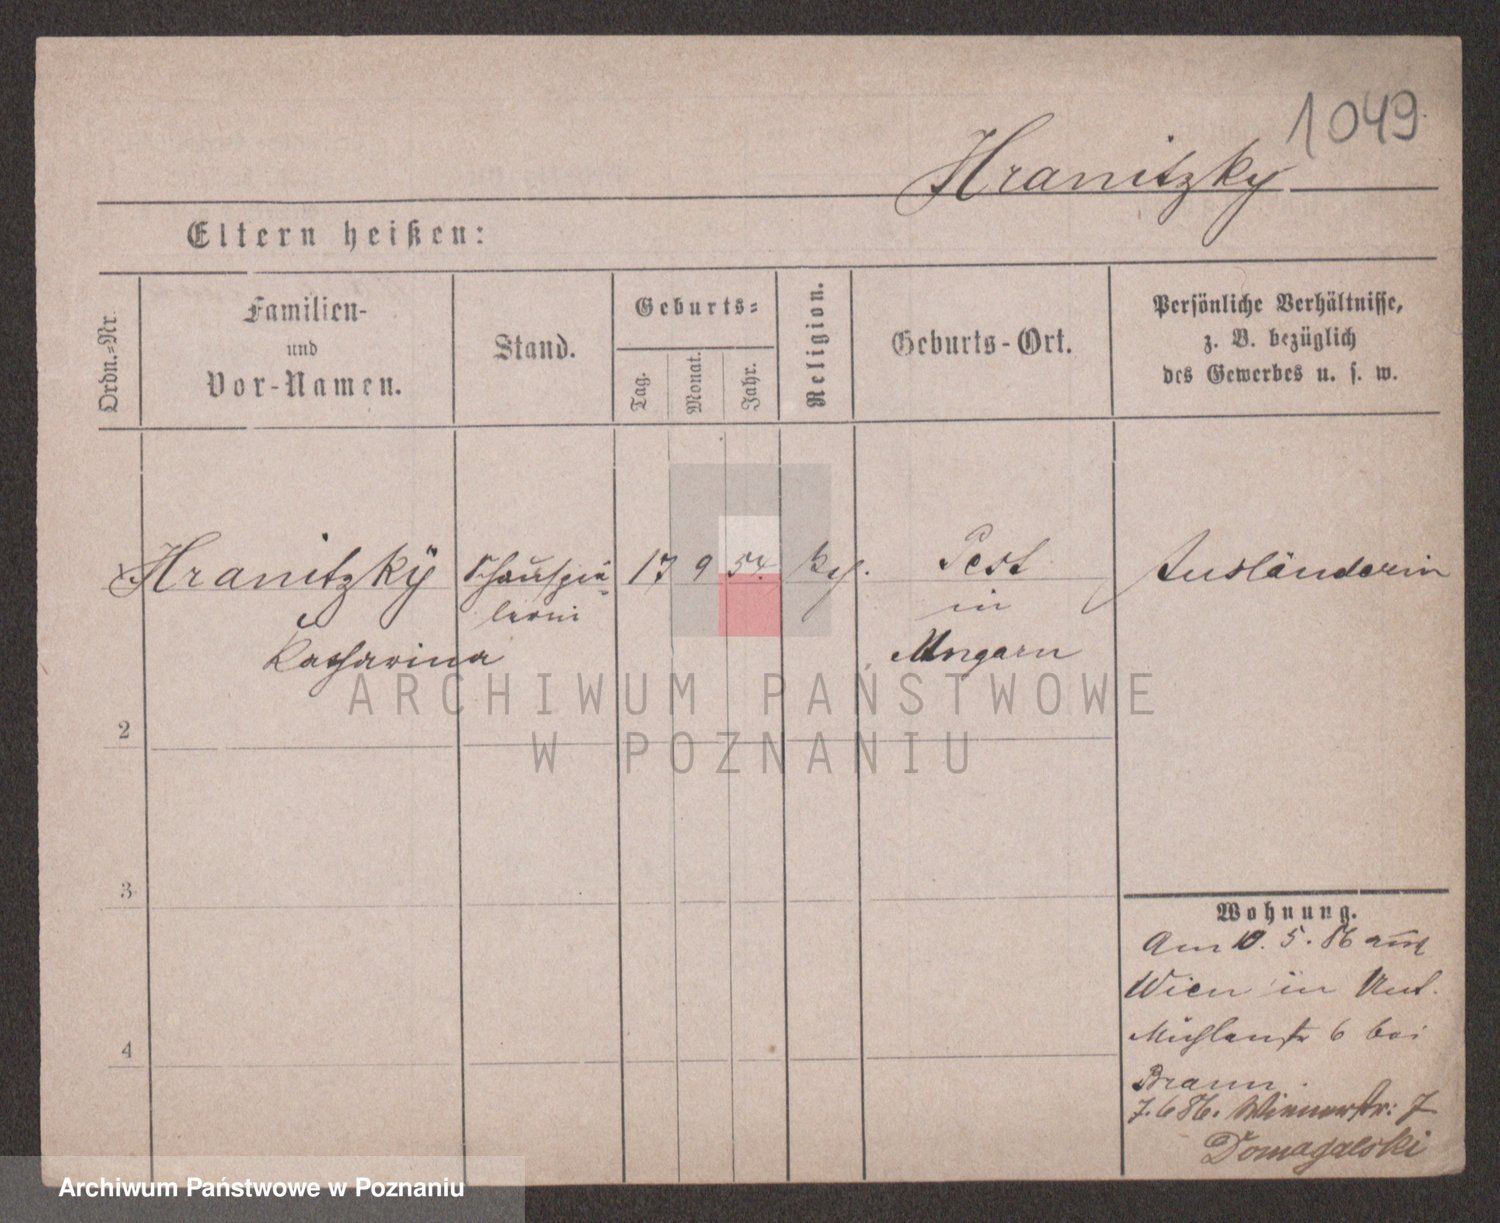 1049
Hranitzky
Eltern heißen:
Ordn.=Nr.
Familien-
und
Vor-Namen.
Stand.
Geburts=
Tag.
Monat.
Jahr.
Religion.
Geburts-Ort.
Persönliche Verhältnisse,
z. B. bezüglich
des Gewerbes u. s. w.
Hranitzkÿ
Katharina
Schauspie-
lerin
17 9 54.
Pest
in
Ungarn
Ausländerin
2
3
4
Wohnung.
Am 10. 5. 86 aus
Wien in Unt.
Mühlenstr 6 bei
Braun.
7.6 86. Wienerstr: 7
Domagalski
ARCHIWUM PAŃSTWOWE
W POZNANIU
Archiwum Państwowe w Poznaniu